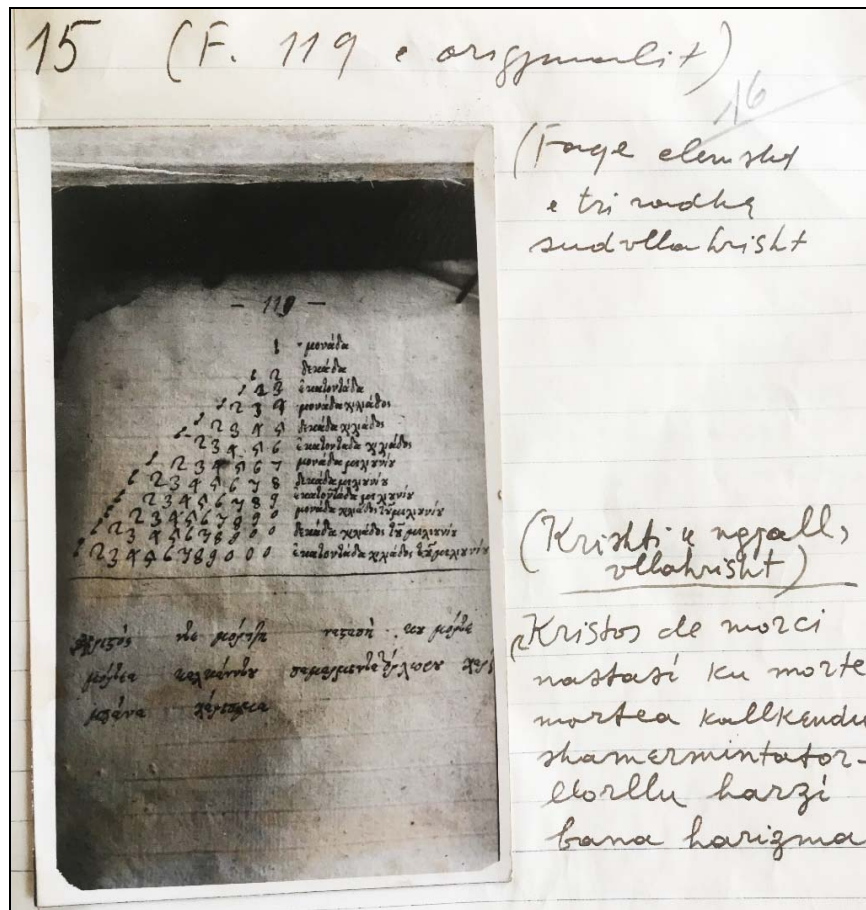 15 (F. 119 e origjinalit)
16
(Faqe
e tri radhë
vllahisht
- 119 -
1 μονάδα
1 2 δεκάδα
1 2 3 ἑκατοντάδα
1 2 3 4 μονάδα χιλιάδος
1 2 3 4 5 δεκάδα χιλιάδος
1 2 3 4 5 6 ἑκατοντάδα χιλιάδος
1 2 3 4 5 6 7 μονάδα
1 2 3 4 5 6 7 8 δεκάδα
1 2 3 4 5 6 7 8 9 ἑκατοντάδα
1 2 3 4 5 6 7 8 9 0 μονάδα χιλιάδος
1 2 3 4 5 6 7 8 9 0 0 δεκάδα χιλιάδος
1 2 3 4 5 6 7 8 9 0 0 0 ἑκατοντάδα χιλιάδος
κου μόρτε
μόρτεα
μπάνα
(Krishti u ngjall,
vllahrisht)
Kristos de morci
nastasi ku morte
mortea kallkendu
shamermintator-
llorllu harzi
bana harizma